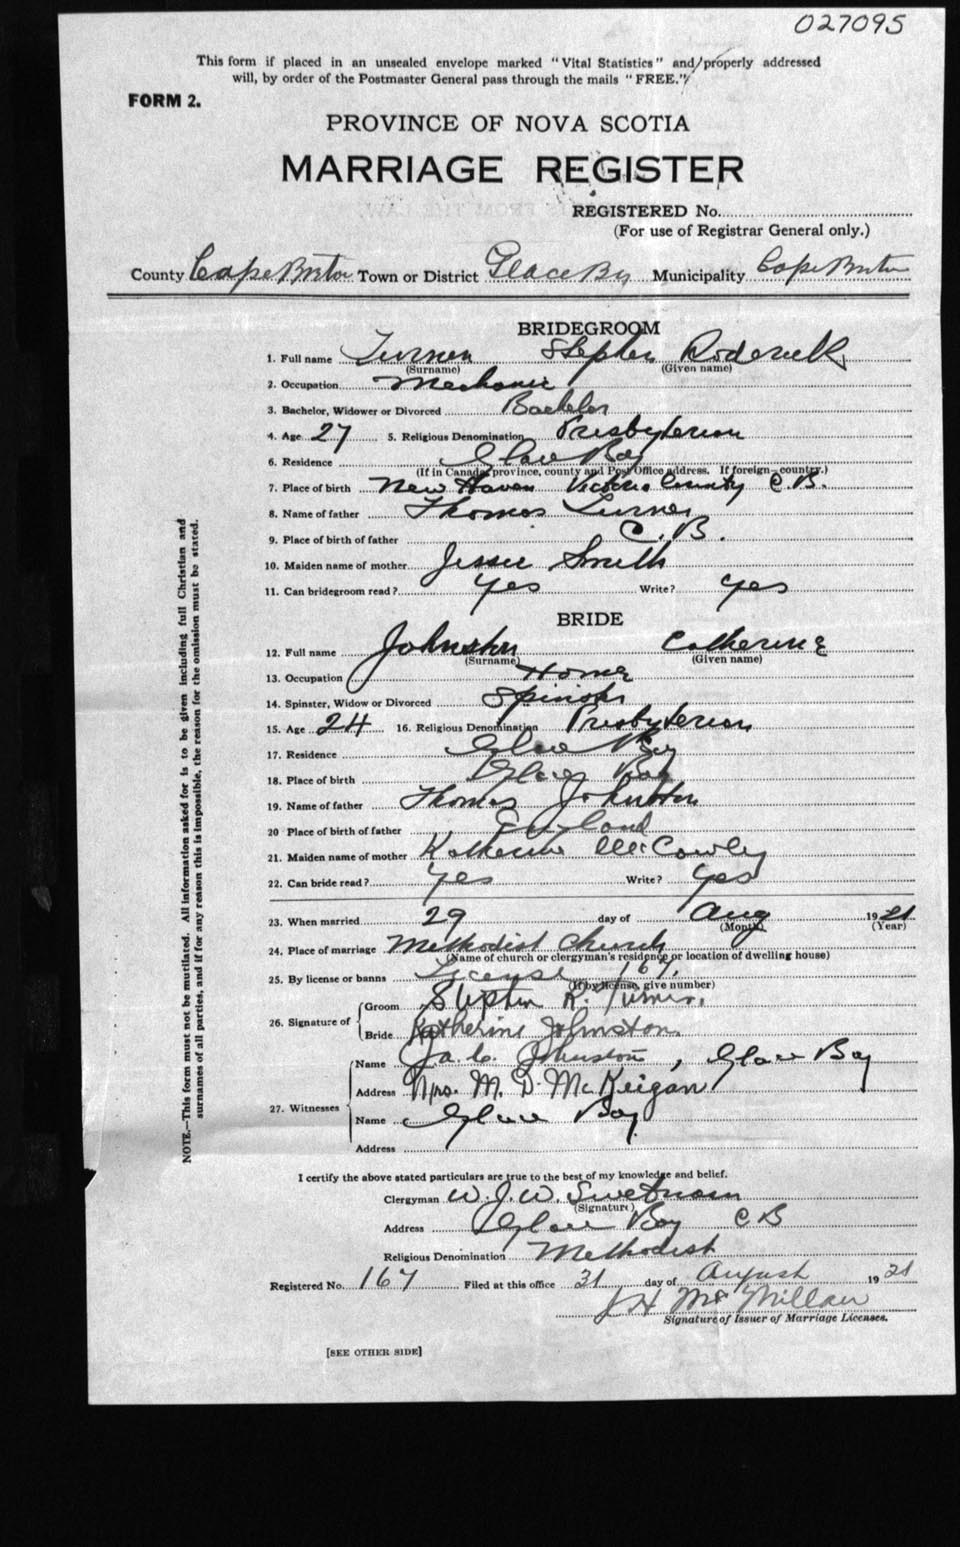 027095
This form if placed in an unsealed envelope marked "Vital Statistics" and/properly addressed
will, by order of the Postmaster General pass through the mails "FREE."
FORM 2.
PROVINCE OF NOVA SCOTIA
MARRIAGE REGISTER
REGISTERED No.
(For use of Registrar General only.)
County Cape Breton Town or District Glace Bay Municipality Cape Breton
BRIDEGROOM
1. Full name Turner Stephen Roderick
(Surname) (Given name)
2. Occupation Mechanic
3. Bachelor, Widower or Divorced Bachelor
4. Age 27 5. Religious Denomination Presbyterian
6. Residence Glace Bay
(If in Canada, province, county and Post Office address. If foreign—country.)
7. Place of birth New Haven Victoria County C.B.
8. Name of father Thomas Turner
9. Place of birth of father C.B.
10. Maiden name of mother Jessie Smith
11. Can bridegroom read? Yes Write? Yes
BRIDE
12. Full name Johnston Catherine
(Surname) (Given name)
13. Occupation Home
14. Spinster, Widow or Divorced Spinster
15. Age 24 16. Religious Denomination Presbyterian
17. Residence Glace Bay
18. Place of birth Glace Bay
19. Name of father Thomas Johnston
20 Place of birth of father England
21. Maiden name of mother Katherine McCowley
22. Can bride read? Yes Write? Yes
23. When married 29 day of Aug 1921
(Month) (Year)
24. Place of marriage Methodist Church
(Name of church or clergyman's residence or location of dwelling house)
25. By license or banns License 167.
(If by license, give number)
26. Signature of Groom Stephen R. Turner.
Bride Katherine Johnston.
27. Witnesses
Name Ja. C. Johnston, Glace Bay
Address Mrs. M. D. McKeigan
Name Glace Bay
Address
I certify the above stated particulars are true to the best of my knowledge and belief.
Clergyman W. J. W. Swetnam
(Signature)
Address Glace Bay C B
Religious Denomination Methodist
Registered No. 167 Filed at this office 31 day of August 1921
J H McMillan
Signature of Issuer of Marriage Licenses.
[SEE OTHER SIDE]
NOTE.—This form must not be mutilated. All information asked for is to be given including full Christian and
surnames of all parties, and if for any reason this is impossible, the reason for the omission must be stated.